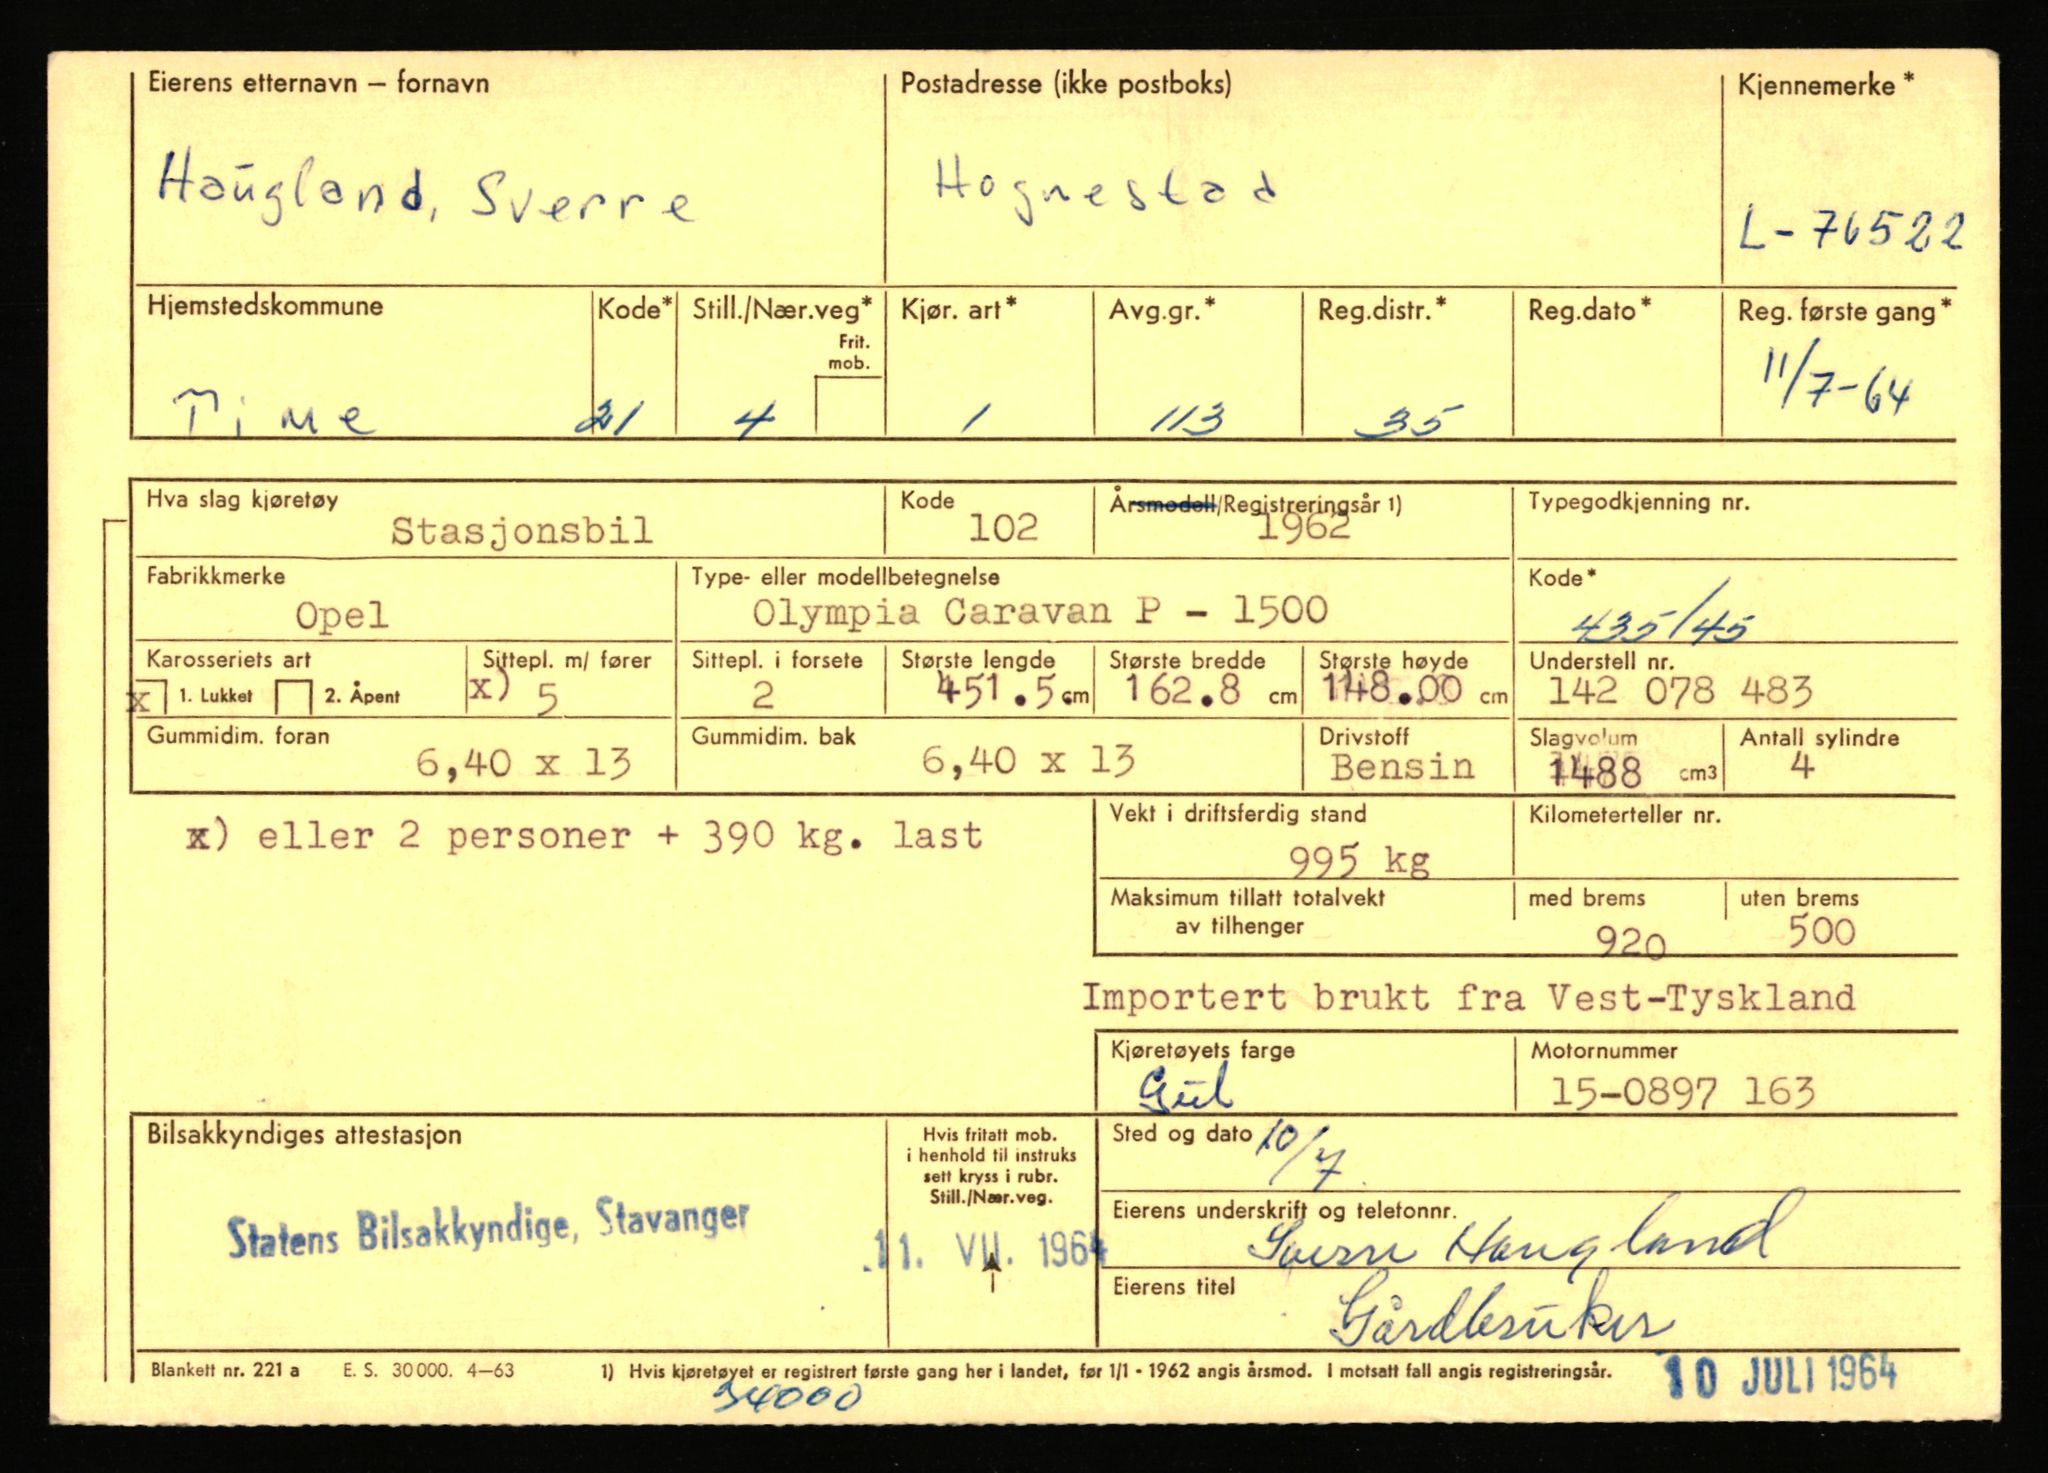 Eierens etternavn – fornavn
Haugland, Sverre
Postadresse (ikke postboks)
Hognestad
Kjennemerke*
L-76522
Hjemstedskommune
Time
Kode*
21
Still./Nær.veg*
Frit.
mob.
4
Kjør. art*
1
Avg.gr.*
113
Reg.distr.*
35
Reg.dato*
Reg. første gang*
11/7-64
Hva slag kjøretøy
Stasjonsbil
Kode
102
Årsmodell/Registreringsår 1)
1962
Typegodkjenning nr.
Fabrikkmerke
Opel
Type- eller modellbetegnelse
Olympia Caravan P - 1500
Kode*
435/45
Karosseriets art
x 1. Lukket 2. Åpent
Sittepl. m/ fører
x) 5
Sittepl. i forsete
2
Største lengde
451.5 cm
Største bredde
162.8 cm
Største høyde
148.00 cm
Understell nr.
142 078 483
Gummidim. foran
6,40 x 13
Gummidim. bak
6,40 x 13
Drivstoff
Bensin
Slagvolum
1488 cm3
Antall sylindre
4
x) eller 2 personer + 390 kg. last
Vekt i driftsferdig stand
995 kg
Kilometerteller nr.
Maksimum tillatt totalvekt
av tilhenger
med brems
920
uten brems
500
Importert brukt fra Vest-Tyskland
Kjøretøyets farge
Gul
Motornummer
15-0897 163
Bilsakkyndiges attestasjon
Statens Bilsakkyndige, Stavanger
Hvis fritatt mob.
i henhold til instruks
sett kryss i rubr.
Still./Nær.veg.
11. VII. 1964
Sted og dato 10/7
Eierens underskrift og telefonnr.
Sverre Haugland
Eierens titel
Gårdbruker
Blankett nr. 221 a E. S. 30000. 4–63
1) Hvis kjøretøyet er registrert første gang her i landet, før 1/1 - 1962 angis årsmod. I motsatt fall angis registreringsår.
34000
10 JULI 1964